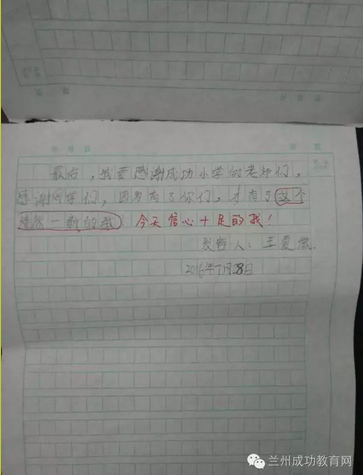 最后，我要感谢成功小学的老师们，
感谢同学们，因为有了你们，才有了这个
焕然一新的我 今天信心十足的我！
发言人：王
2016年7月28日
兰州成功教育网